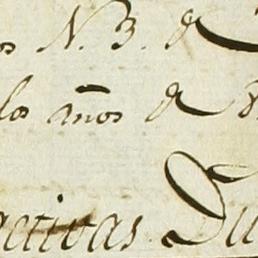 os N. B. de
los años de 8
activas. Du